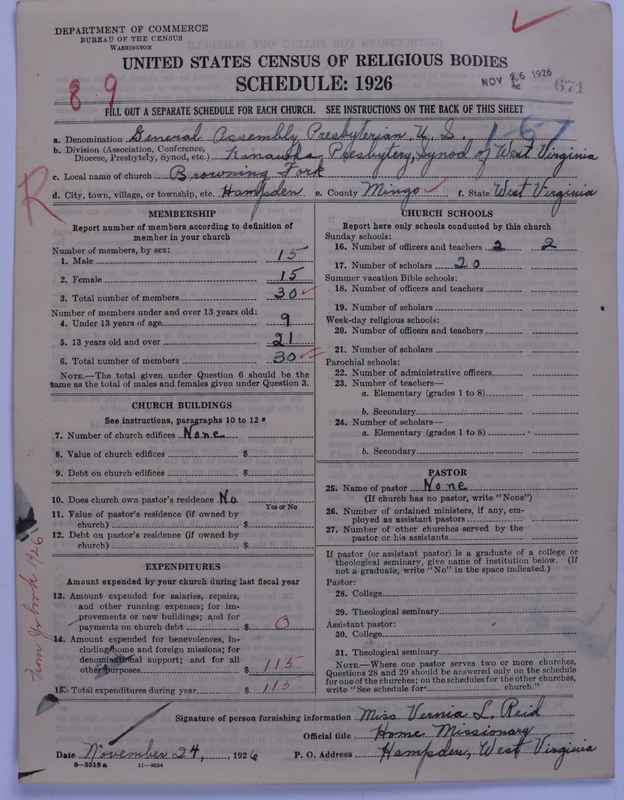 DEPARTMENT OF COMMERCE
BUREAU OF THE CENSUS
WASHINGTON
UNITED STATES CENSUS OF RELIGIOUS BODIES
SCHEDULE: 1926
NOV 26 1926
671
8 9
FILL OUT A SEPARATE SCHEDULE FOR EACH CHURCH. SEE INSTRUCTIONS ON THE BACK OF THIS SHEET
a. Denomination General Assembly Presbyterian, U. S. 1-67
b. Division (Association, Conference, Diocese, Presbytery, Synod, etc.) Kanawha Presbytery, Synod of West Virginia
c. Local name of church Browning Fork
d. City, town, village, or township, etc. Hampden e. County Mingo f. State West Virginia
R
MEMBERSHIP
Report number of members according to definition of member in your church
Number of members, by sex:
1. Male 15
2. Female 15
3. Total number of members 30
Number of members under and over 13 years old:
4. Under 13 years of age 9
5. 13 years old and over 21
6. Total number of members 30
NOTE.—The total given under Question 6 should be the same as the total of males and females given under Question 3.
CHURCH BUILDINGS
See instructions, paragraphs 10 to 12
7. Number of church edifices None
8. Value of church edifices $
9. Debt on church edifices $
10. Does church own pastor's residence No
Yes or No
11. Value of pastor's residence (if owned by church) $
12. Debt on pastor's residence (if owned by church) $
EXPENDITURES
Amount expended by your church during last fiscal year
13. Amount expended for salaries, repairs, and other running expenses; for improvements or new buildings; and for payments on church debt $ 0
14. Amount expended for benevolences, including home and foreign missions; for denominational support; and for all other purposes $ 115
15. Total expenditures during year $ 115
from Yr book 1926
CHURCH SCHOOLS
Report here only schools conducted by this church
Sunday schools:
16. Number of officers and teachers 2 2
17. Number of scholars 20
Summer vacation Bible schools:
18. Number of officers and teachers
19. Number of scholars
Week-day religious schools:
20. Number of officers and teachers
21. Number of scholars
Parochial schools:
22. Number of administrative officers
23. Number of teachers—
a. Elementary (grades 1 to 8)
b. Secondary
24. Number of scholars—
a. Elementary (grades 1 to 8)
b. Secondary
PASTOR
25. Name of pastor None
(If church has no pastor, write "None")
26. Number of ordained ministers, if any, employed as assistant pastors
27. Number of other churches served by the pastor or his assistants
If pastor (or assistant pastor) is a graduate of a college or theological seminary, give name of institution below. (If not a graduate, write "No" in the space indicated.)
Pastor:
28. College
29. Theological seminary
Assistant pastor:
30. College
31. Theological seminary
NOTE.—Where one pastor serves two or more churches, Questions 28 and 29 should be answered only on the schedule for one of the churches; on the schedules for the other churches, write "See schedule for church."
Signature of person furnishing information Miss Vernia L. Reid
Official title Home Missionary
Date November 24, , 1926 P. O. Address Hampden, West Virginia
8—5518 a 11—9054